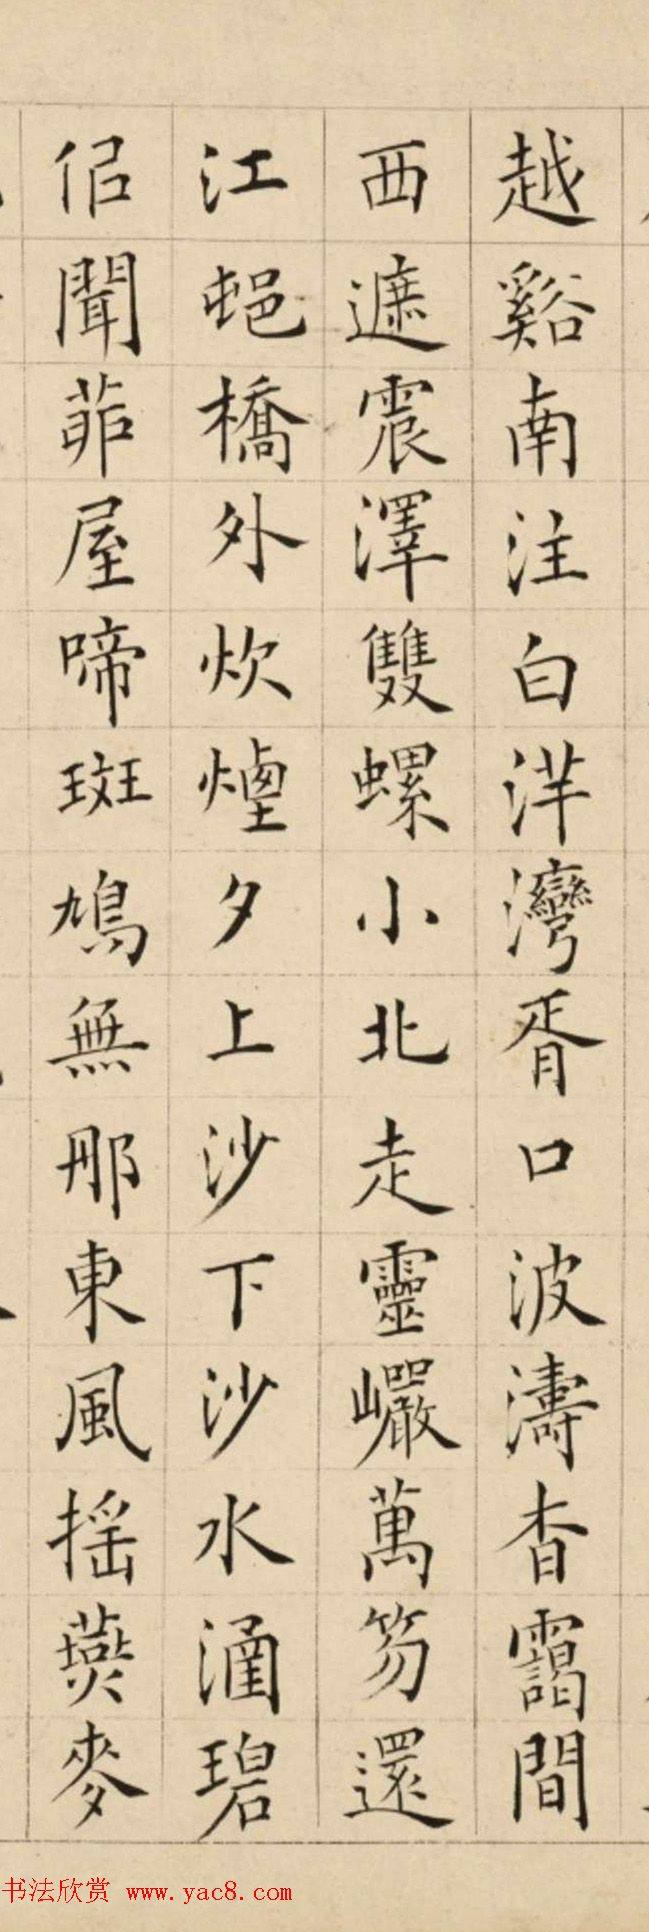 越谿南注白洋灣胥口波濤杳靄間
西遮震澤雙螺小北走靈巖萬笏還
江邨橋外炊煙夕上沙下沙水涵碧
但聞茆屋啼斑鳩無那東風搖燕麥
书法欣赏 www.yac8.com